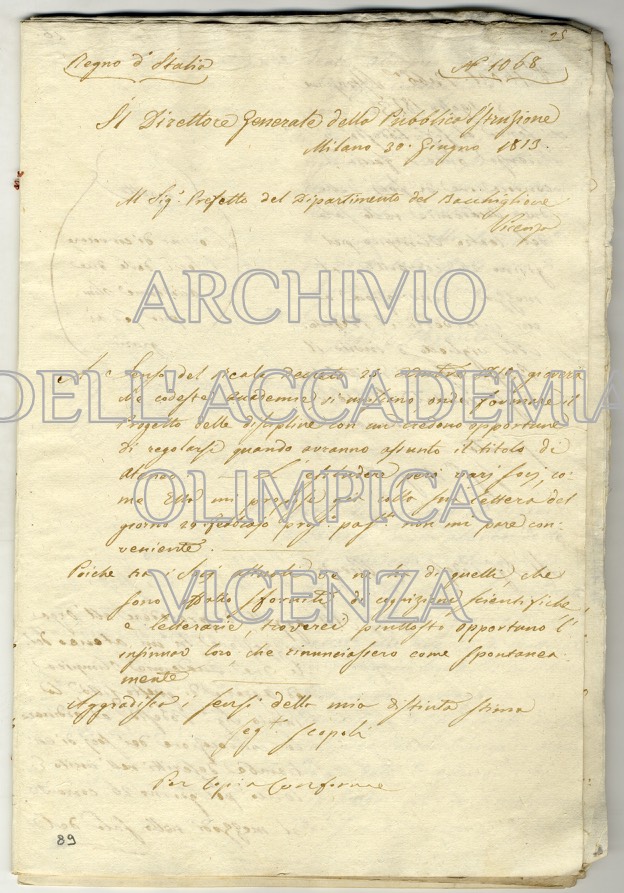 25
Regno d'Italia
N° 1068
Il Direttore Generale della Pubblica Istruzione
Milano 30. Giugno 1813.
Al Sig.r Prefetto del Dipartimento del Bacchiglione
Vicenza
ARCHIVIO
DELL'ACCADEMIA
OLIMPICA
VICENZA
A senso del Reale Decreto 25
che codeste Accademie si onde formare il
Progetto delle discipline con cui credono opportuno
di regolarsi quando avranno assunto il titolo di
Ateneo. L'escludere però varj Socj, co-
me Ella mi già colla sua lettera del
giorno 24 febbrajo non mi pare con-
veniente.
Poichè tra i Socj ve ne ha di quelli, che
sono sforniti di cognizioni scientifiche,
e letterarie, troverei piuttosto opportuno l'
insinuar loro che rinunciassero come spontanea-
mente.
Aggradisca i sensi della mia distinta stima
Seg.t Scopoli
Per Copia Conforme
89